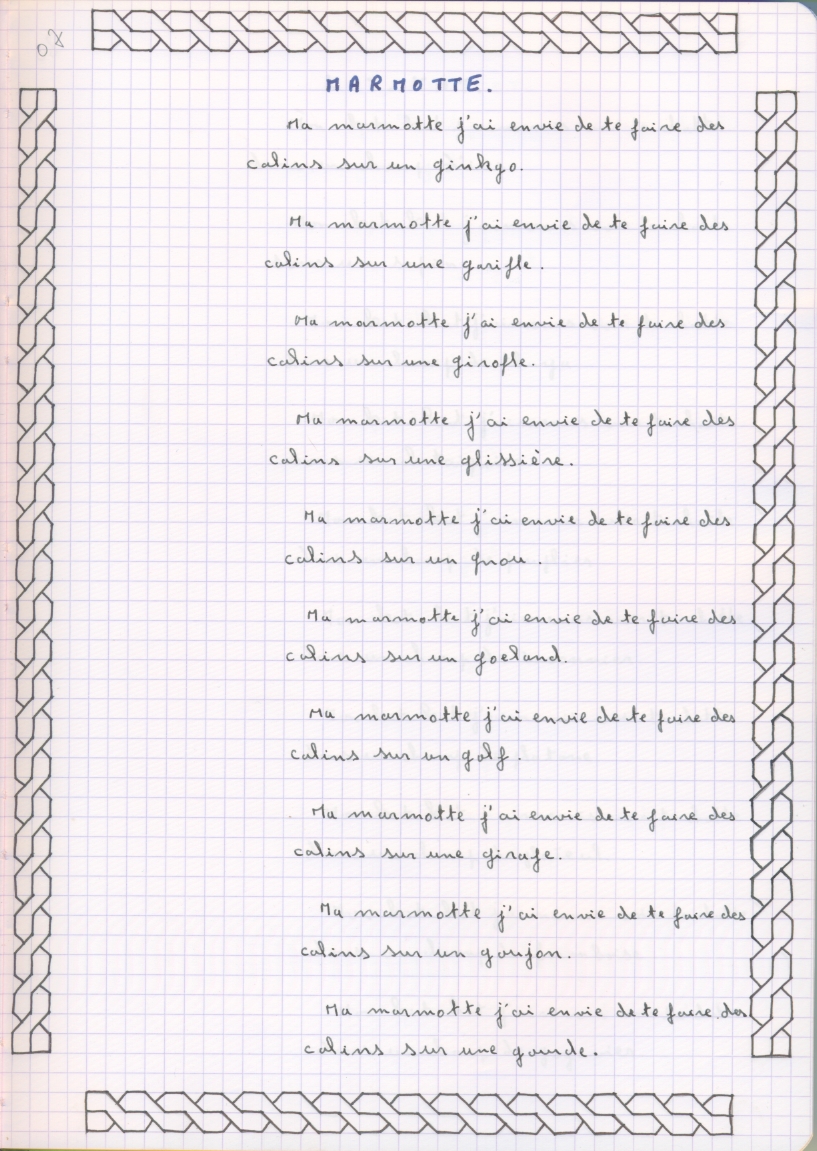 08
MARMOTTE.
Ma marmotte j'ai envie de te faire des
calins sur un ginkgo.
Ma marmotte j'ai envie de te faire des
calins sur une garifle.
Ma marmotte j'ai envie de te faire des
calins sur une girofle.
Ma marmotte j'ai envie de te faire des
calins sur une glissière.
Ma marmotte j'ai envie de te faire des
calins sur un gnou.
Ma marmotte j'ai envie de te faire des
calins sur un goeland.
Ma marmotte j'ai envie de te faire des
calins sur un golf.
Ma marmotte j'ai envie de te faire des
calins sur une girafe.
Ma marmotte j'ai envie de te faire des
calins sur un goujon.
Ma marmotte j'ai envie de te faire des
calins sur une gourde.